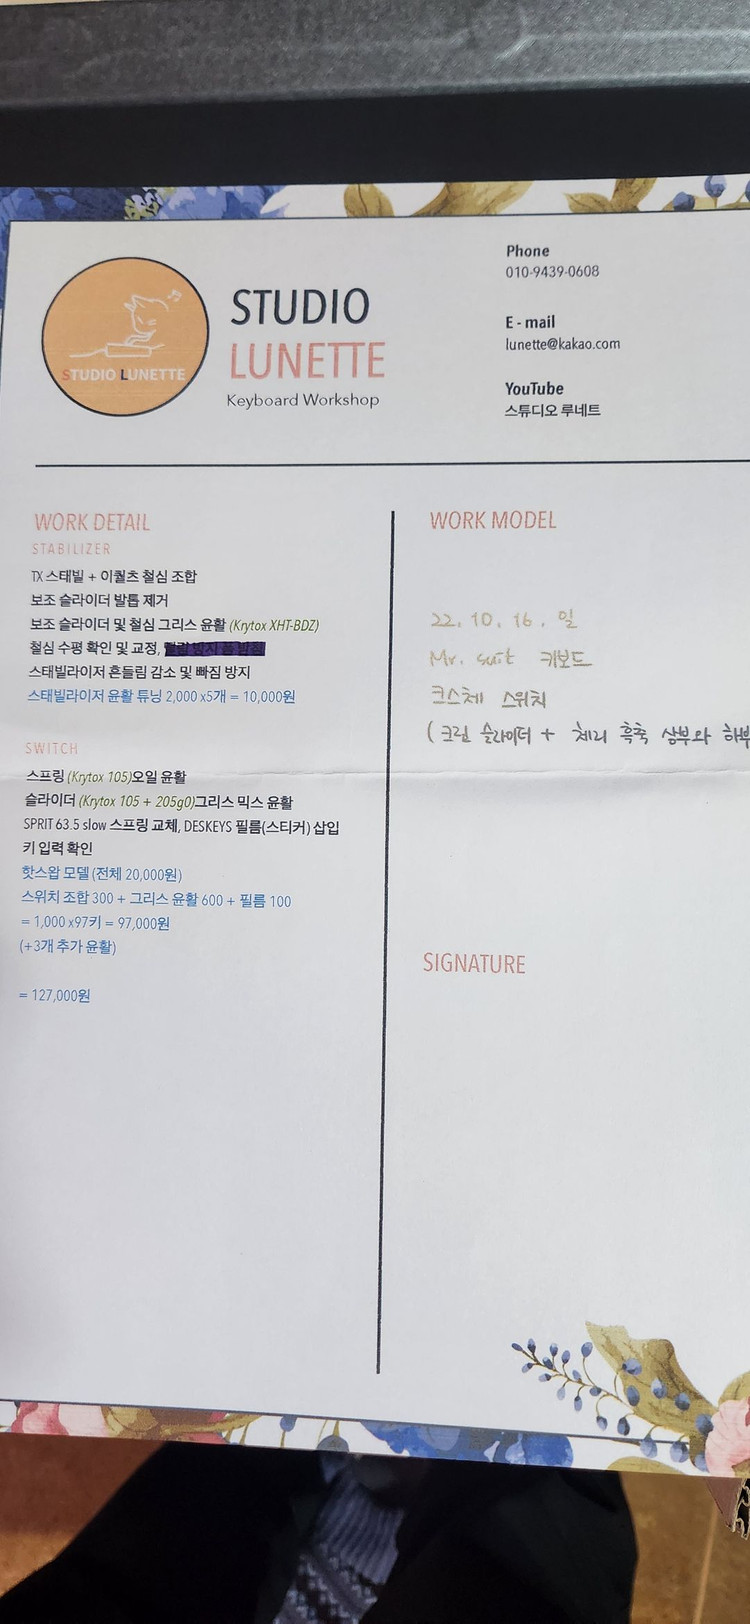 STUDIO LUNETTE
STUDIO
LUNETTE
Keyboard Workshop
Phone
010-9439-0608
E - mail
lunette@kakao.com
YouTube
스튜디오 루네트
WORK DETAIL
STABILIZER
TX 스태빌 + 이퀄츠 철심 조합
보조 슬라이더 발톱 제거
보조 슬라이더 및 철심 그리스 윤활 (Krytox XHT-BDZ)
철심 수평 확인 및 교정,
스태빌라이저 흔들림 감소 및 빠짐 방지
스태빌라이저 윤활 튜닝 2,000 x5개 = 10,000원
SWITCH
스프링 (Krytox 105)오일 윤활
슬라이더 (Krytox 105 + 205g0)그리스 믹스 윤활
SPRIT 63.5 slow 스프링 교체, DESKEYS 필름(스티커) 삽입
키 입력 확인
핫스왑 모델 (전체 20,000원)
스위치 조합 300 + 그리스 윤활 600 + 필름 100
= 1,000 x97키 = 97,000원
(+3개 추가 윤활)
= 127,000원
WORK MODEL
22. 10. 16. 일
Mr. suit 키보드
크스체 스위치
(크림 슬라이더 + 체리 흑축 상부와 하부
SIGNATURE